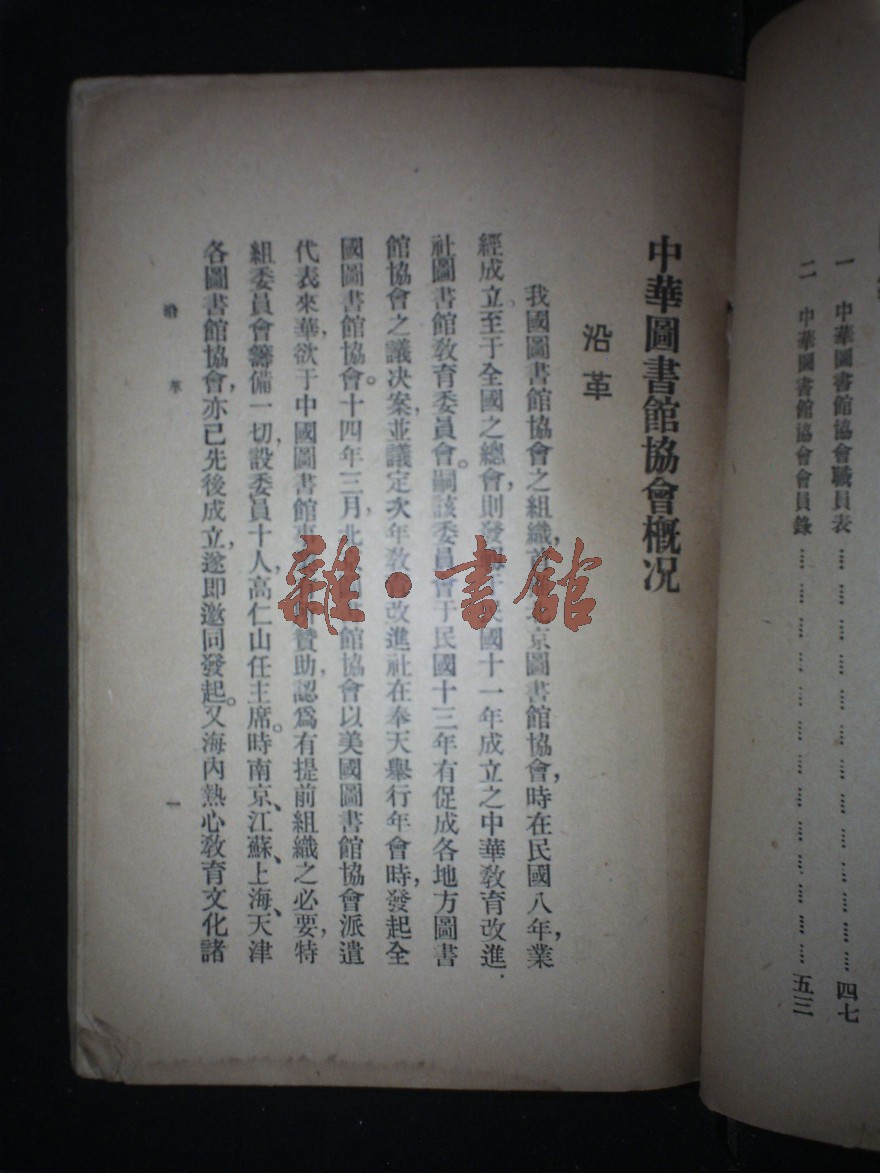 一 中華圖書館協會職員表 .... .... .... .... .... .... .... .... .... 四七
二 中華圖書館協會會員錄 .... .... .... .... .... .... .... .... .... 五三
中華圖書館協會概況
沿革
我國圖書館協會之組織,京圖書館協會,時在民國八年,業
經成立。至于全國之總會,則發國十一年成立之中華教育改進
社圖書館教育委員會。嗣該委員會于民國十三年有促成各地方圖書
館協會之議決案,並議定次年教育改進社在奉天舉行年會時,發起全
國圖書館協會。十四年三月,北館協會以美國圖書館協會派遣
代表來華,欲于中國圖書館事贊助,認爲有提前組織之必要,特
組委員會籌備一切,設委員十人,高仁山任主席。時南京、江蘇、上海、天津
各圖書館協會,亦已先後成立,遂即邀同發起。又海內熱心教育文化諸
沿革
一
雜·書館